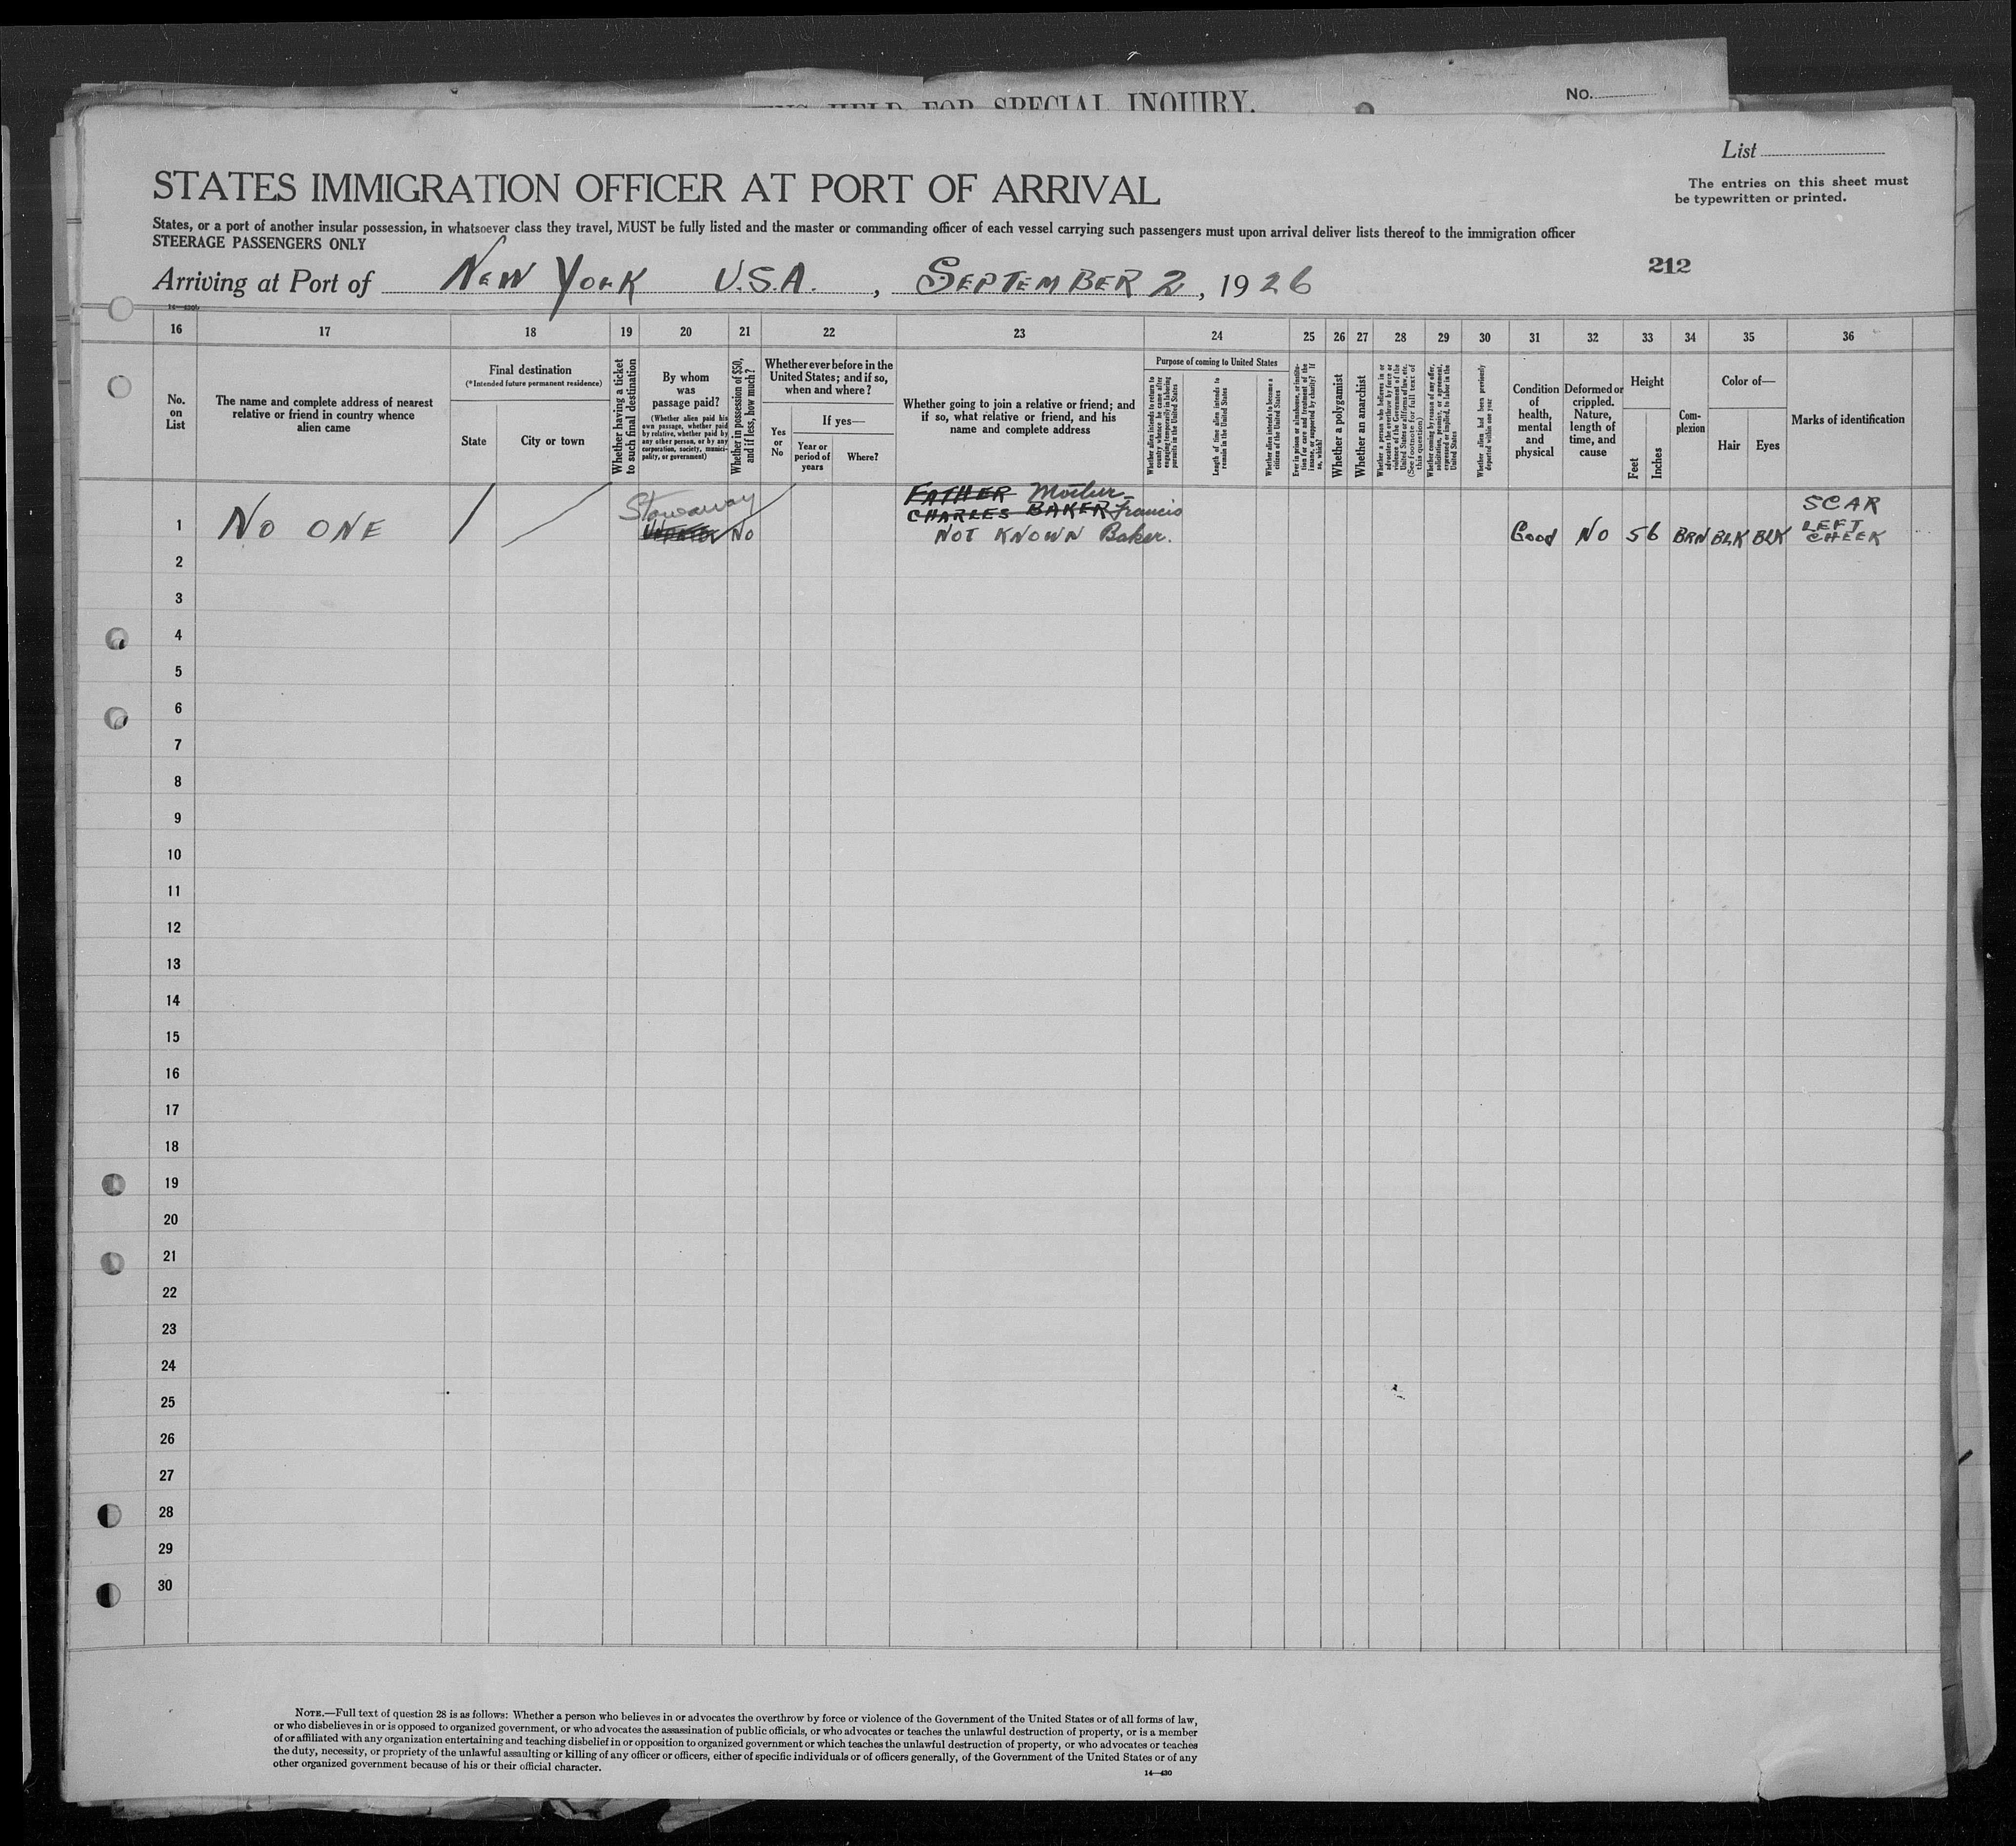 HELD FOR SPECIAL INQUIRY.
No.
List
STATES IMMIGRATION OFFICER AT PORT OF ARRIVAL
The entries on this sheet must
be typewritten or printed.
States, or a port of another insular possession, in whatsoever class they travel, MUST be fully listed and the master or commanding officer of each vessel carrying such passengers must upon arrival deliver lists thereof to the immigration officer
STEERAGE PASSENGERS ONLY
Arriving at Port of NEW YORK U.S.A., SEPTEMBER 2, 1926
212
16 17 18 19 20 21 22 23 24 25 26 27 28 29 30 31 32 33 34 35 36
No.
on
List
The name and complete address of nearest
relative or friend in country whence
alien came
Final destination
(*Intended future permanent residence)
State
City or town
Whether having a ticket
to such final destination
By whom
was
passage paid?
(Whether alien paid his
own passage, whether paid
by relative, whether paid by
any other person, or by any
corporation, society, munici-
pality, or government)
Whether in possession of $50,
and if less, how much?
Whether ever before in the
United States; and if so,
when and where?
Yes
or
No
If yes—
Year or
period of
years
Where?
Whether going to join a relative or friend; and
if so, what relative or friend, and his
name and complete address
Purpose of coming to United States
Whether alien intends to return to
country whence he came after
engaging temporarily in laboring
pursuits in the United States
Length of time alien intends to
remain in the United States
Whether alien intends to become a
citizen of the United States
Ever in prison or almshouse, or institu-
tion for care and treatment of the
insane, or supported by charity? If
so, which?
Whether a polygamist
Whether an anarchist
Whether a person who believes in or
advocates the overthrow by force or
violence of the Government of the
United States or all forms of law, etc.
(See footnote for full text of
this question)
Whether coming by reason of any offer,
solicitation, promise, or agreement,
expressed or implied, to labor in the
United States
Whether alien had been previously
deported within one year
Condition
of
health,
mental
and
physical
Deformed or
crippled.
Nature,
length of
time, and
cause
Height
Feet
Inches
Com-
plexion
Color of—
Hair
Eyes
Marks of identification
1 NO ONE
Stowaway
NO
FATHER Mother
CHARLES BAKER Francis
NOT KNOWN Baker.
Good NO 5 6 BRN BLK BLK
SCAR
LEFT
CHEEK
2
3
4
5
6
7
8
9
10
11
12
13
14
15
16
17
18
19
20
21
22
23
24
25
26
27
28
29
30
NOTE.—Full text of question 28 is as follows: Whether a person who believes in or advocates the overthrow by force or violence of the Government of the United States or of all forms of law,
or who disbelieves in or is opposed to organized government, or who advocates the assassination of public officials, or who advocates or teaches the unlawful destruction of property, or is a member
of or affiliated with any organization entertaining and teaching disbelief in or opposition to organized government or which teaches the unlawful destruction of property, or who advocates or teaches
the duty, necessity, or propriety of the unlawful assaulting or killing of any officer or officers, either of specific individuals or of officers generally, of the Government of the United States or of any
other organized government because of his or their official character.
14—430